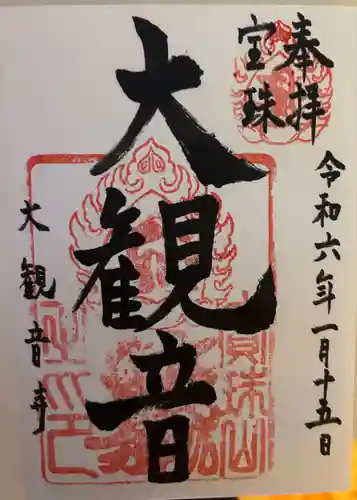 奉拝
宝珠
令和六年一月十五日
大観音
大観音寺